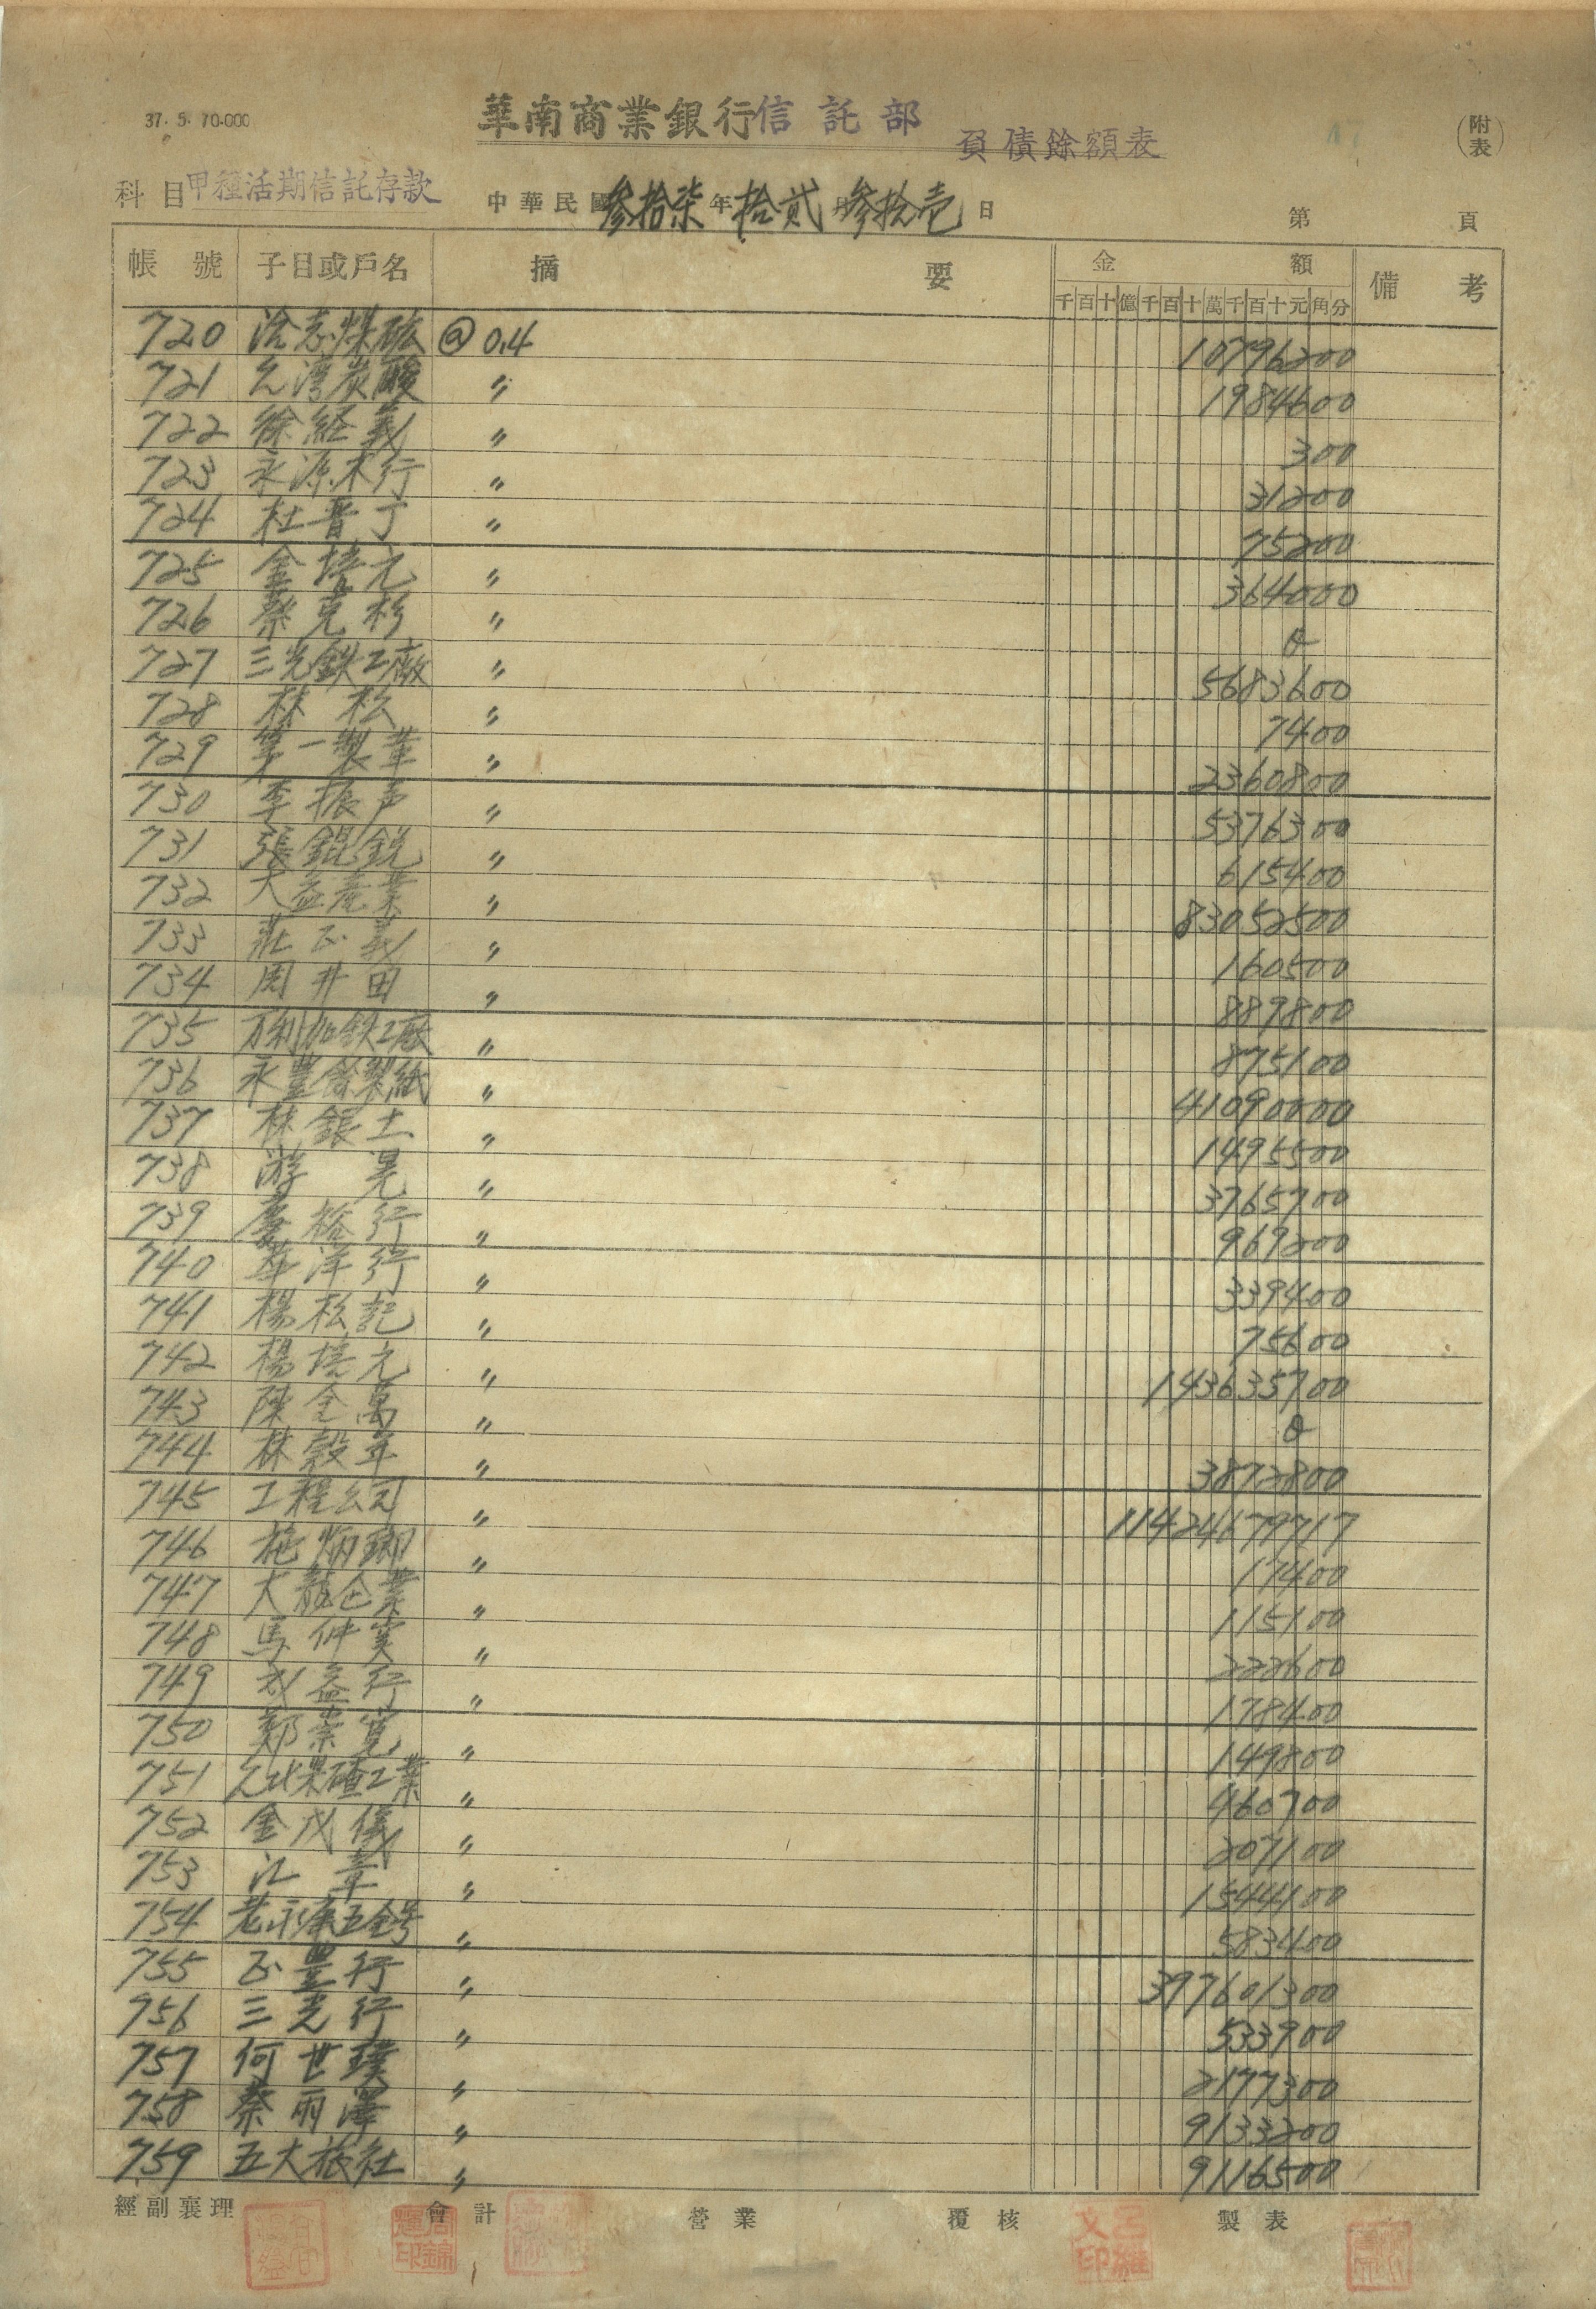 37. 5. 70.000
華南商業銀行信託部 負債餘額表 (附表)
科目 甲種活期信託存款 中華民國參拾柒年拾貳月參拾壱日 第 頁
帳號 子目或戶名 摘要 金額 備考
千百十億千百十萬千百十元角分
720 煤砿 @0.4 10796200
721 台湾炭酸 〃 1984600
722 徐経義 〃 300
723 永源木行 〃 31200
724 杜晋丁 〃 75200
725 金培元 〃 364000
726 蔡克杉 〃 0
727 三光鉄工廠 〃 5683600
728 林松 〃 7400
729 第一製革 〃 2360800
730 李振声 〃 5376300
731 張錕鋭 〃 615400
732 大益産業 〃 83052500
733 莊正義 〃 160500
734 周井田 〃 889800
735 万利加鉄工廠 〃 875100
736 永豊餘製紙 〃 41090000
737 林銀土 〃 1495500
738 游晃 〃 3765700
739 慶裕行 〃 969200
740 華洋行 〃 339400
741 楊松記 〃 75600
742 楊培元 〃 143635700
743 陳全萬 〃 0
744 林穀年 〃 3872800
745 工程公司 〃 11424679717
746 施炳 〃 17400
747 大龍企業 〃 115100
748 馬仲実 〃 222600
749 益行 〃 178400
750 鄭崇寛 〃 149800
751 工業 〃 460700
752 金茂儀 〃 207100
753 江章 〃 1544100
754 老永康五金号 〃 583400
755 正豊行 〃 397601300
756 三光行 〃 533900
757 何世璞 〃 2177300
758 蔡雨澤 〃 9133200
759 五大旅社 〃 9116500
經副襄理 會計 營業 覆核 製表